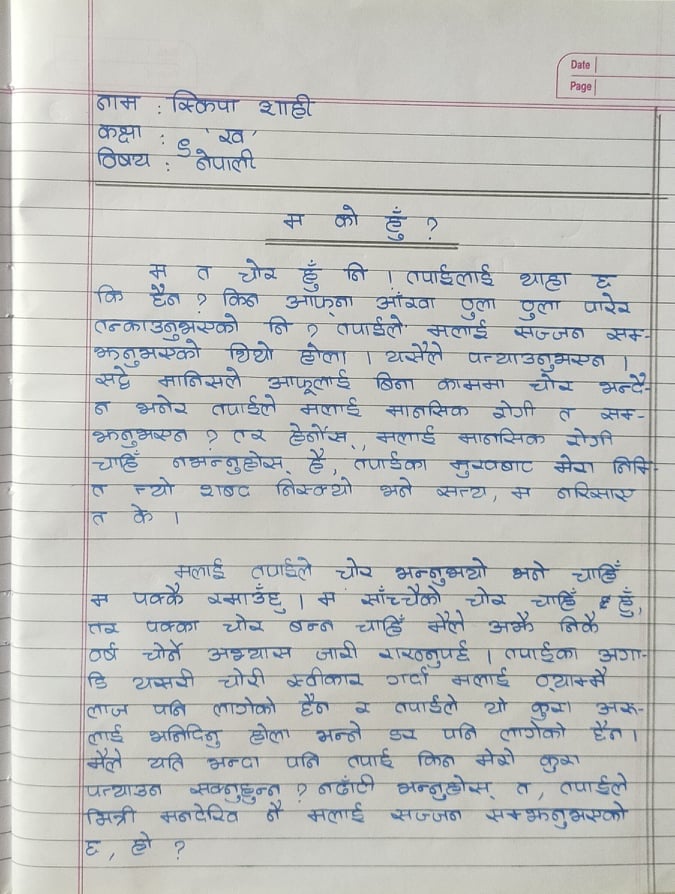 Date
Page
नाम : स्किपा शाही
कक्षा : ९ 'ख'
विषय : नेपाली
म को हुँ ?
म त चोर हुँ नि । तपाईलाई थाहा छ
कि हैन ? किन आफ्ना आँखा ठुला ठुला पारेर
तन्काउनुभएको नि ? तपाईले मलाई सज्जन सम-
झनुभएको थियो होला । यसैले पत्याउनुभएन ।
सद्दे मानिसले आफूलाई बिना काममा चोर भन्दै-
न भनेर तपाईले मलाई मानसिक रोगी त सम-
झनुभएन ? तर हेर्नोस्, मलाई मानसिक रोगी
चाहिँ नभन्नुहोस् है, तपाईका मुखबाट मेरा निमि-
त त्यो शब्द निस्क्यो भने सत्य, म नरिसाए
त के ।
मलाई तपाईले चोर भन्नुभयो भने चाहिँ
म पक्कै रमाउँछु । म साँच्चैको चोर चाहिँ हुँ,
तर पक्का चोर बन्न चाहिँ मैले अझै निकै
वर्ष चोर्ने अभ्यास जारी राख्नुपर्छ । तपाईका अगा-
डि यसरी चोरी स्वीकार गर्दा मलाई ठ्याम्मै
लाज पनि लागेको हैन र तपाईले यो कुरा अरू-
लाई भनिदिनु होला भन्ने डर पनि लागेको हैन ।
मैले यति भन्दा पनि तपाई किन मेरो कुरा
पत्याउन सक्नुहुन्न ? नढाँटी भन्नुहोस् त, तपाईले
भित्री मनदेखि नै मलाई सज्जन सम्झनुभएको
छ, हो ?